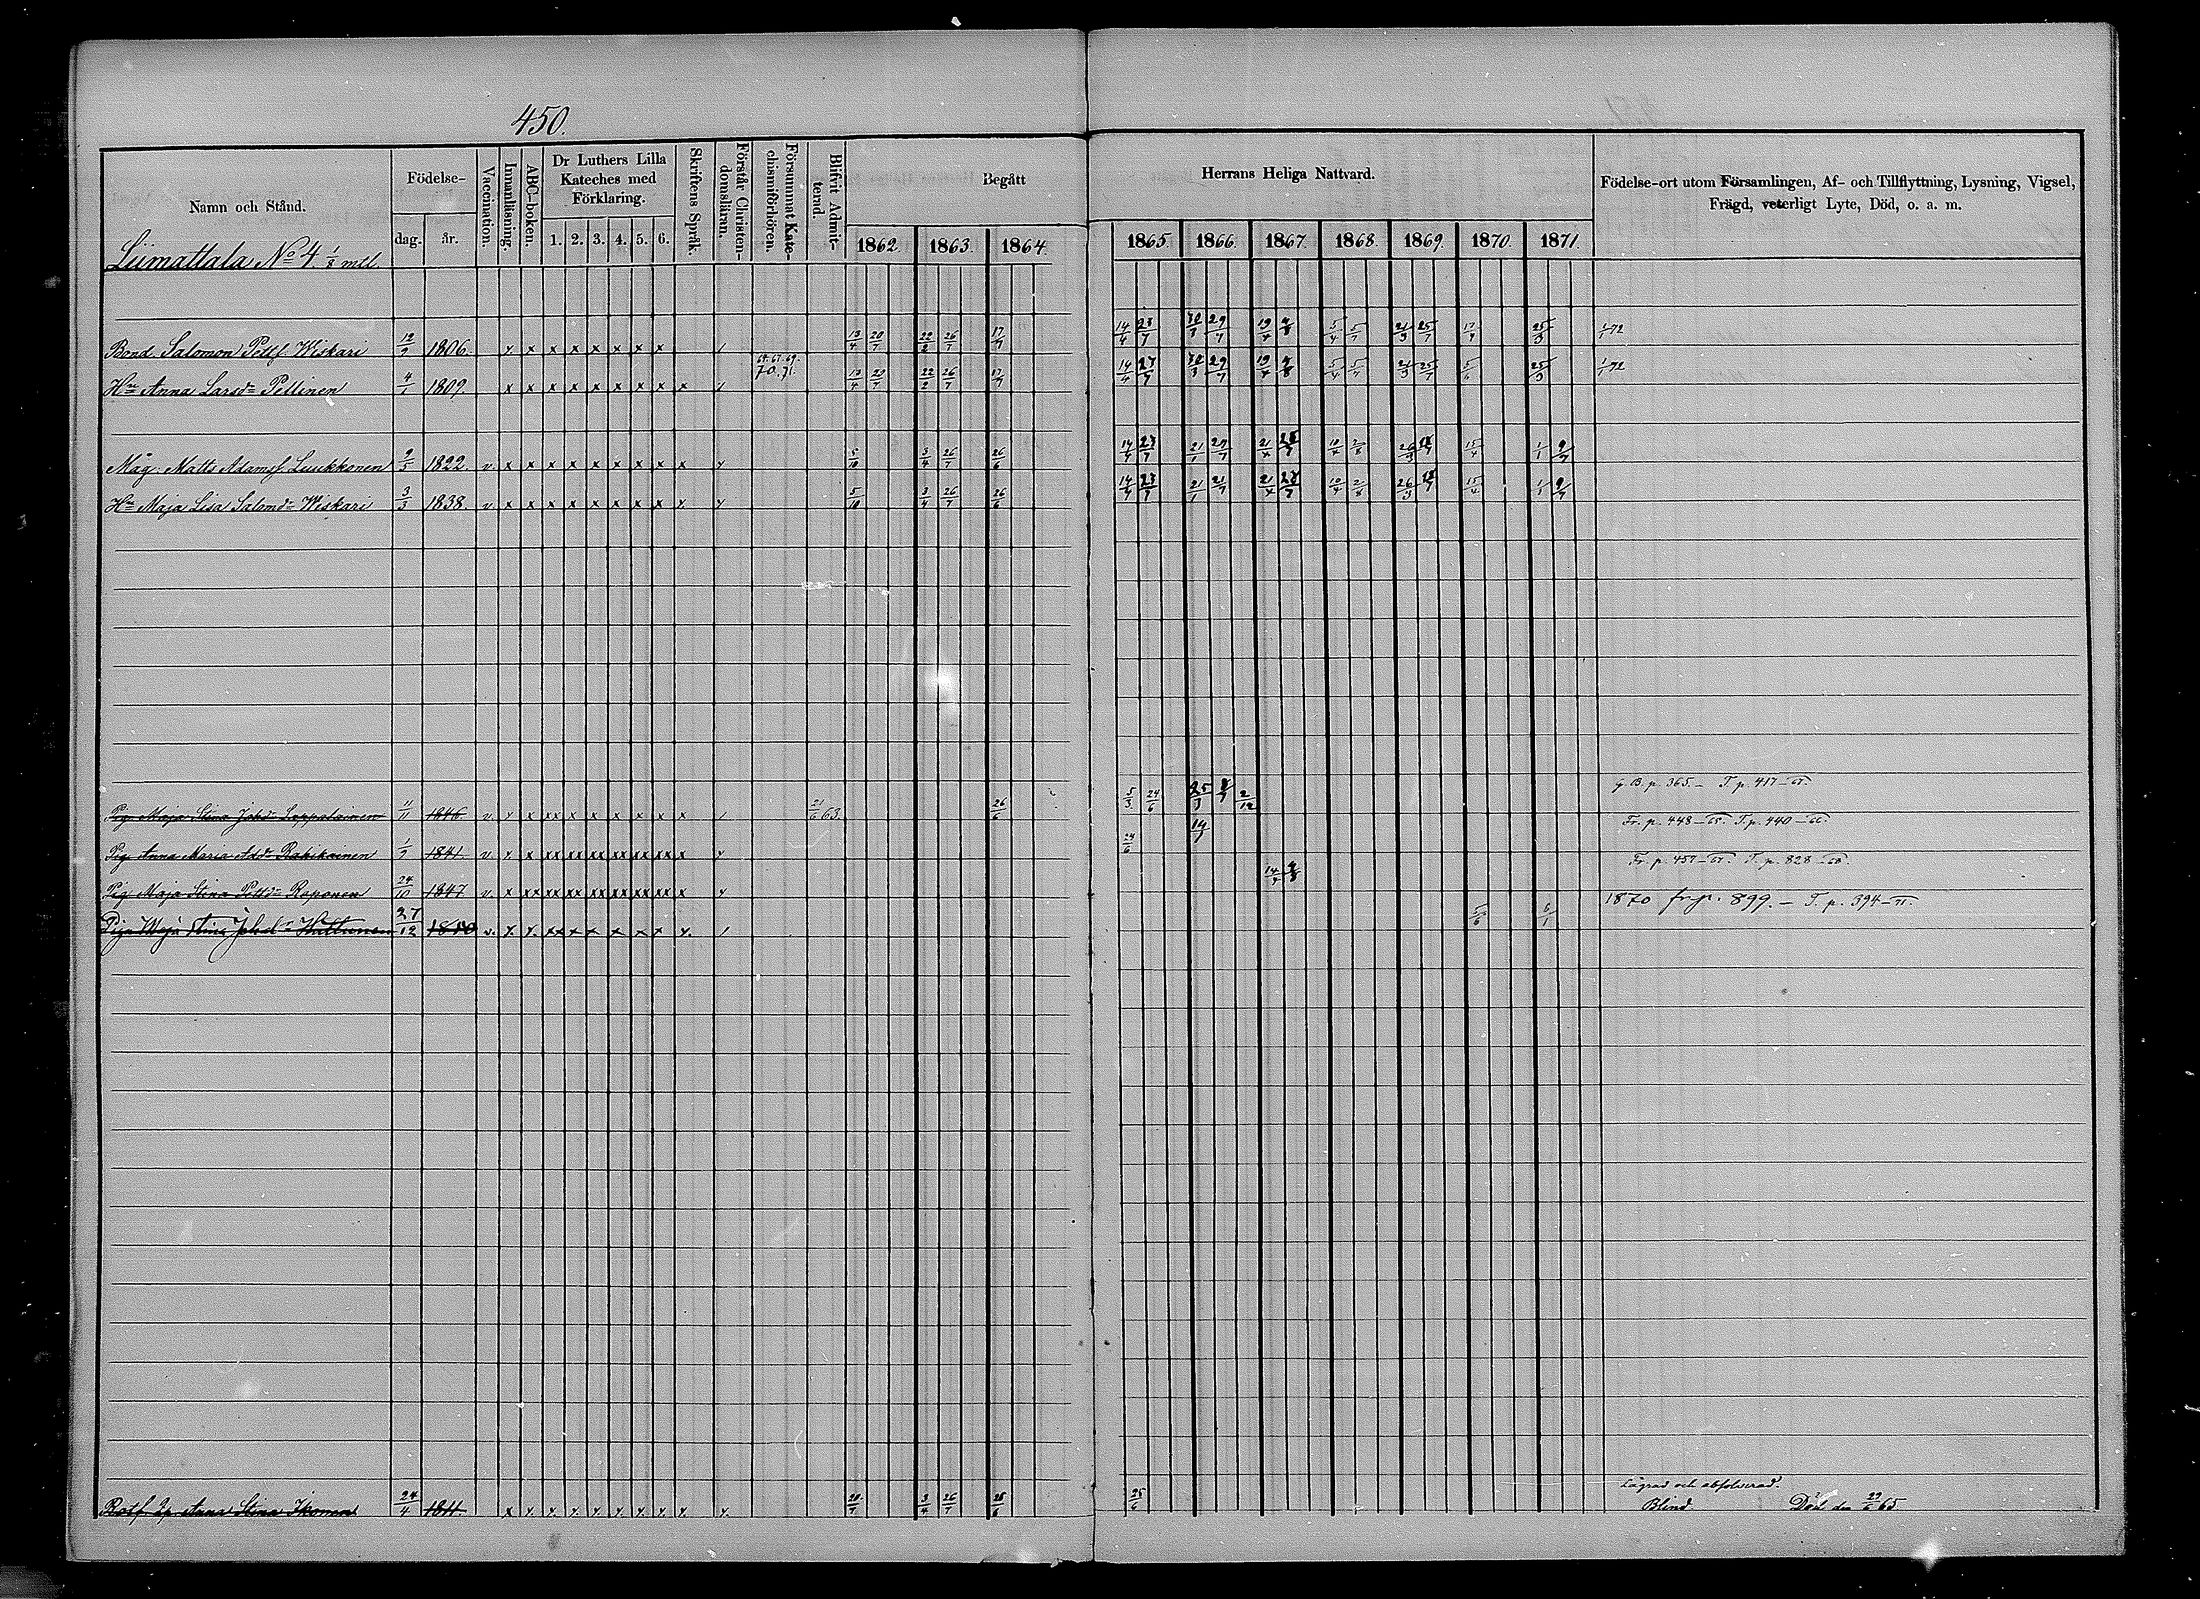 450.
Namn och Stånd.
Födelse-
dag. år.
Vaccination.
Innanläsning.
ABC-boken.
Dr Luthers Lilla
Kateches med
Förklaring.
1. 2. 3. 4. 5. 6.
Skriftens Språk.
Förstår Christen-
domsläran.
Försummat Kate-
chismiförhören.
Blifvit Admit-
terad.
Begått
1862. 1863. 1864.
Herrans Heliga Nattvard.
1865. 1866. 1867. 1868. 1869. 1870. 1871.
Födelse-ort utom Församlingen, Af- och Tillflyttning, Lysning, Vigsel,
Frägd, veterligt Lyte, Död, o. a. m.
Liimattala No 4. 1/8 mtl.
Bond. Salomon Pettf. Wiskari 12/9 1806. x x x x x x x x / 13/4 20/7 22/2 26/7 17/7 14/4 23/7 30/3 29/7 19/4 5/4 5/7 21/3 25/7 17/7 25/3 1/1 72
64.67.69.
70.71.
Hu Anna Larsdr Pellinen 4/1 1809. x x x x x x x x x / 13/4 20/7 22/2 26/7 17/7 14/4 23/7 30/3 29/7 19/4 5/4 5/7 21/3 25/7 5/6 25/3 1/1 72
Måg. Matts Adamsf. Luukkonen 9/5 1822. v. x x x x x x x x x x 5/10 3/4 26/7 26/6 14/4 23/7 21/1 29/7 21/4 12/4 2/8 26/3 15/4 1/1 9/7
Hu Maja Lisa Salomdr Wiskari 3/3 1838. v. x x x x x x x x x x 5/10 3/4 26/7 26/6 14/4 23/7 21/1 21/7 21/4 12/4 2/8 26/3 15/4 1/1 9/7
Pig. Maja Stina Johdr Lappalainen 11/11 1846 v. x x xx x x x x x x / 21/6 63. 26/6 5/3 24/6 25/3 2/12 g. B. p. 365. - T. p. 417 - 67.
Pig. Anna Maria Addr Rahikainen 1/7 1841. v. x x xx xx xx xx xx xx x x 24/6 14/7 Fr. p. 448 - 65. T. p. 440 - 66.
Pig. Maja Stina Pettdr Roponen 24/10 1847 v. x xx xx xx xx xx xx xx x x 14/7 Fr. p. 457 - 67. T. p. 828 - 68.
Piga Maja Stina Johdr Huttunen 27/12 1850 v. x x xx x x x x x x / 5/6 6/1 1870 fr. p. 899. - T. p. 394 - 71.
Lägrad och absolverad.
Rotf. Anna Stina Ikonen 24/4 1811. x x x x x x x x x x 20/7 3/4 26/7 25/6 25/6 Blind Död den 29/6 65